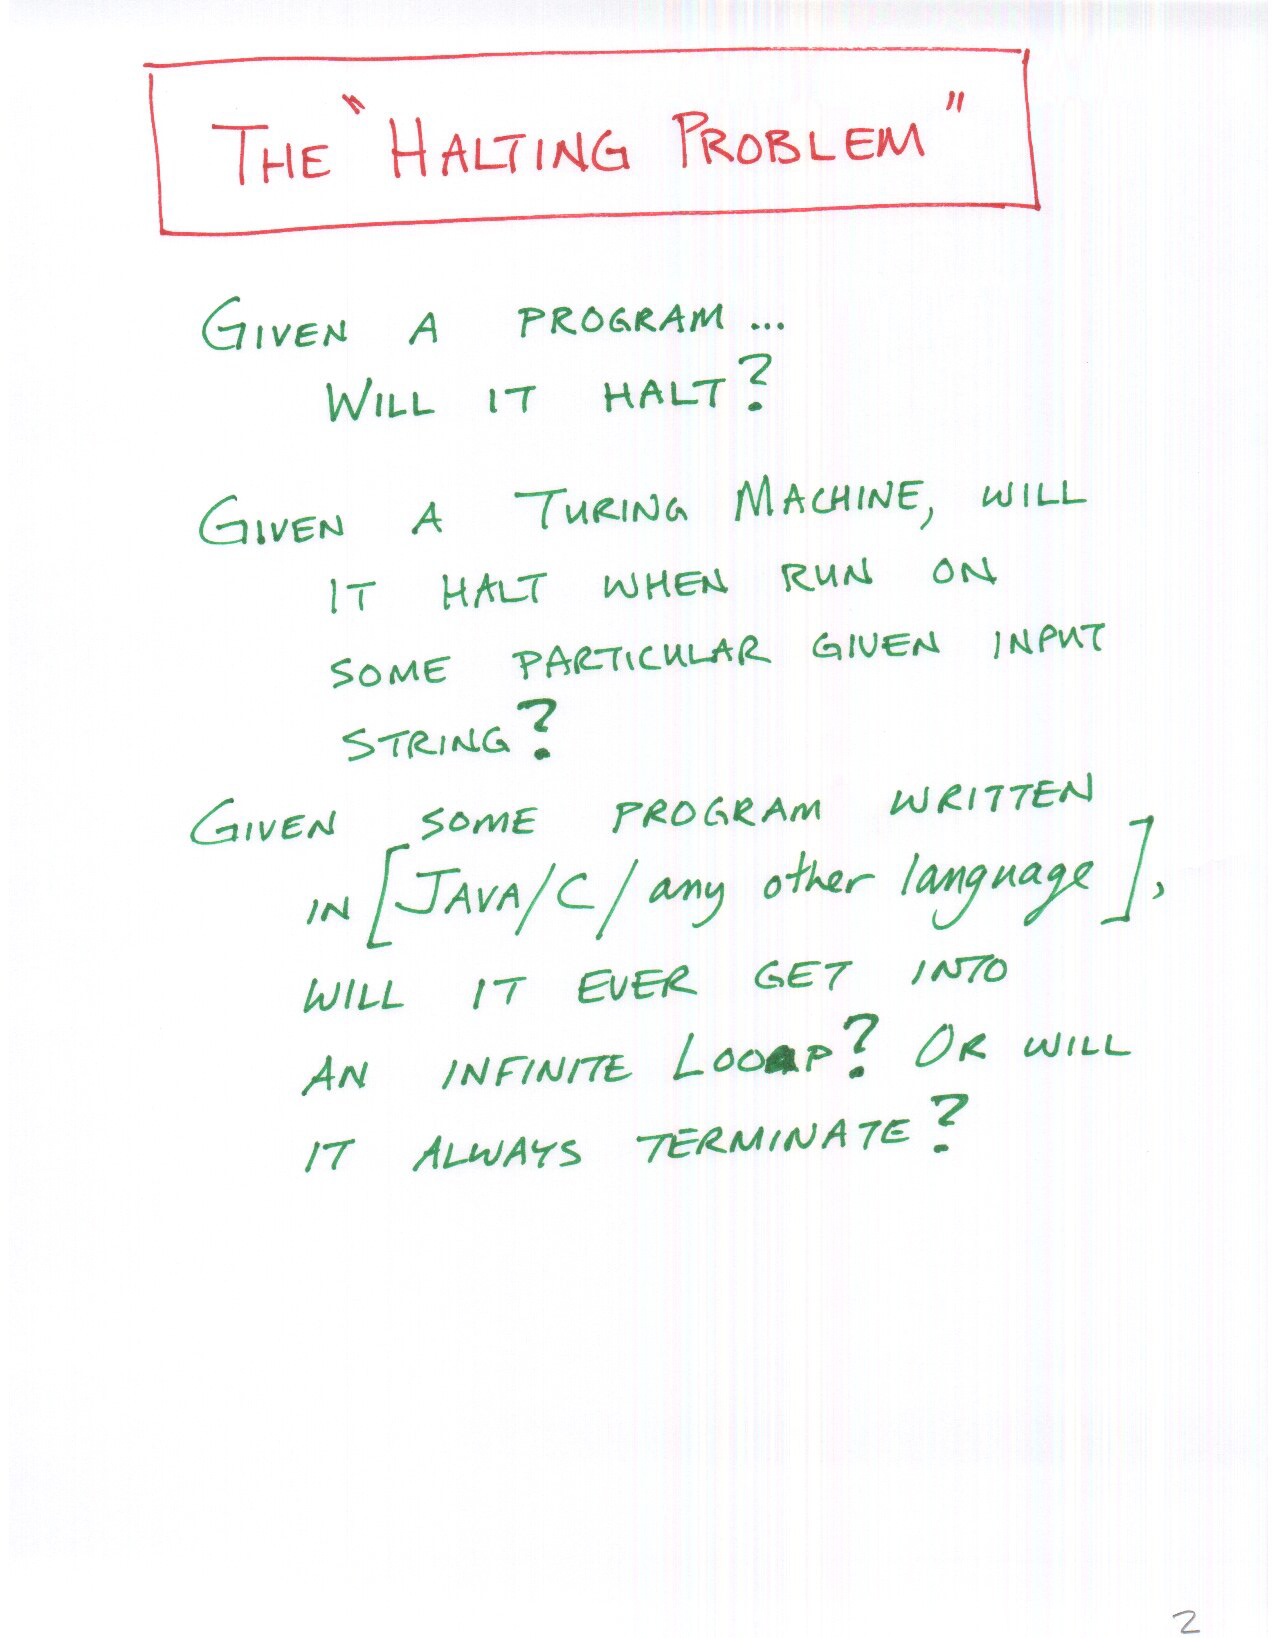 THE "HALTING PROBLEM"
GIVEN A PROGRAM...
WILL IT HALT?
GIVEN A TURING MACHINE, WILL
IT HALT WHEN RUN ON
SOME PARTICULAR GIVEN INPUT
STRING?
GIVEN SOME PROGRAM WRITTEN
IN [JAVA/C/any other language],
WILL IT EVER GET INTO
AN INFINITE LOOP? OR WILL
IT ALWAYS TERMINATE?
2